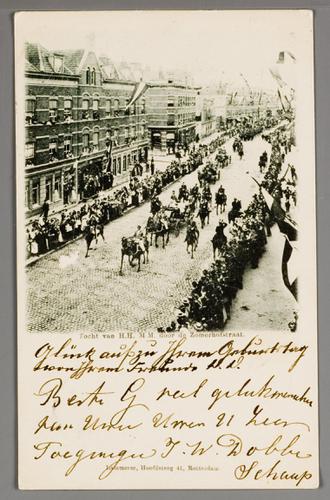 Tocht van H.H. M.M. door de Zomerhofstraat.
Glück auf zu Ihrem Geburtstag
von Ihrem Freunde
Beste G veel gelukwenschen
van Uwe Uwen U Zeer
Toegenegen J. W. Dobbe
Schaap
Hoofdsteeg 41, Rotterdam